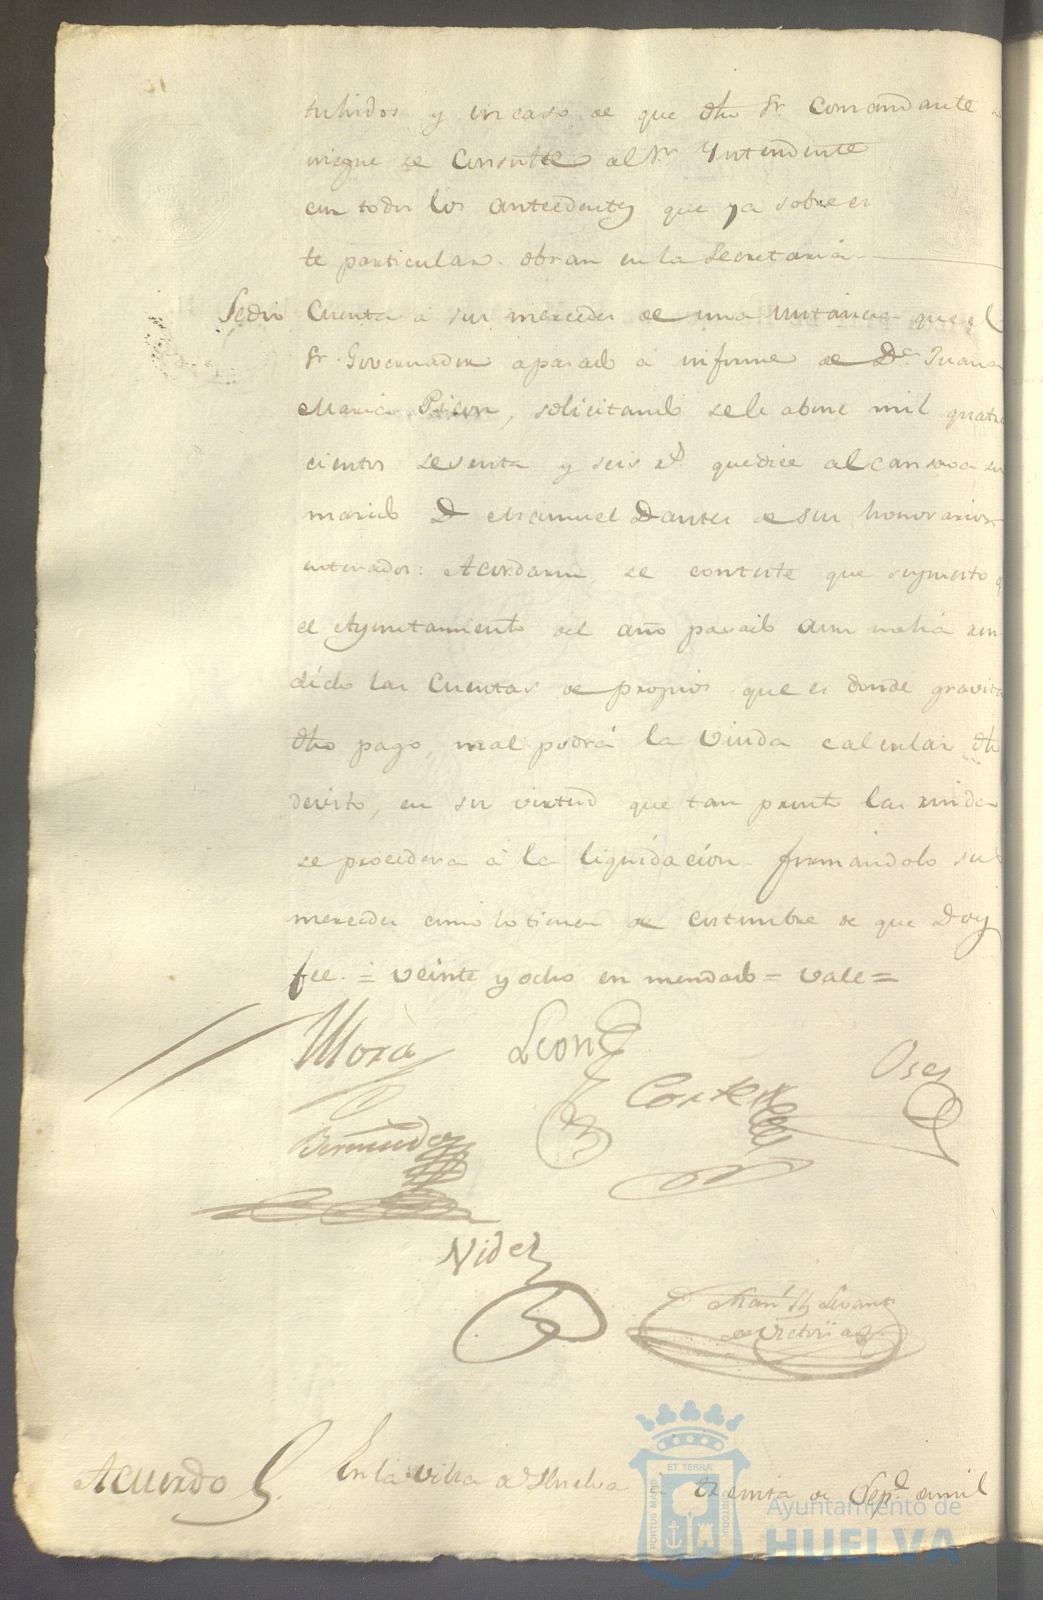 tuhidos y en caso de que dho Sr. Comandante
niegue se Consulte al Sr. Yntendente
con todos los antecedentes que ya sobre es
te particular obran en la Secretaría
Se dio Cuenta a sus mercedes de una instancia que el
Sr. Governador apasado a informe de Da. Juana
Maria Picon, solicitando sele abone mil quatro
cientos sesenta y seis rs. quedice alcansava su
marido D Manuel Dantes de sus honorarios
entenados: Acordaron se conteste que supuesto q
el Ayuntamiento del año pasado aun nohá ren
dído las Cuentas de propios que es donde gravita
dho pago, mal podrá la Viuda calcular dho
devito, en su virtud que tan pronto las rinda
se procedera à la liquidación. firmándolo sus
mercedes como lo tienen de costumbre de que Doy
fee. = veinte y ocho en mendado = vale =
Mora Leon
Cortes Oses
Bermudez
Videl
Man.l
de Victoria
Acuerdo En la villa de Huelva à treinta de Sep.e demil
ET TERRÆ
PORTUS MARIS CUSTODIA
Ayuntamiento de
HUELVA